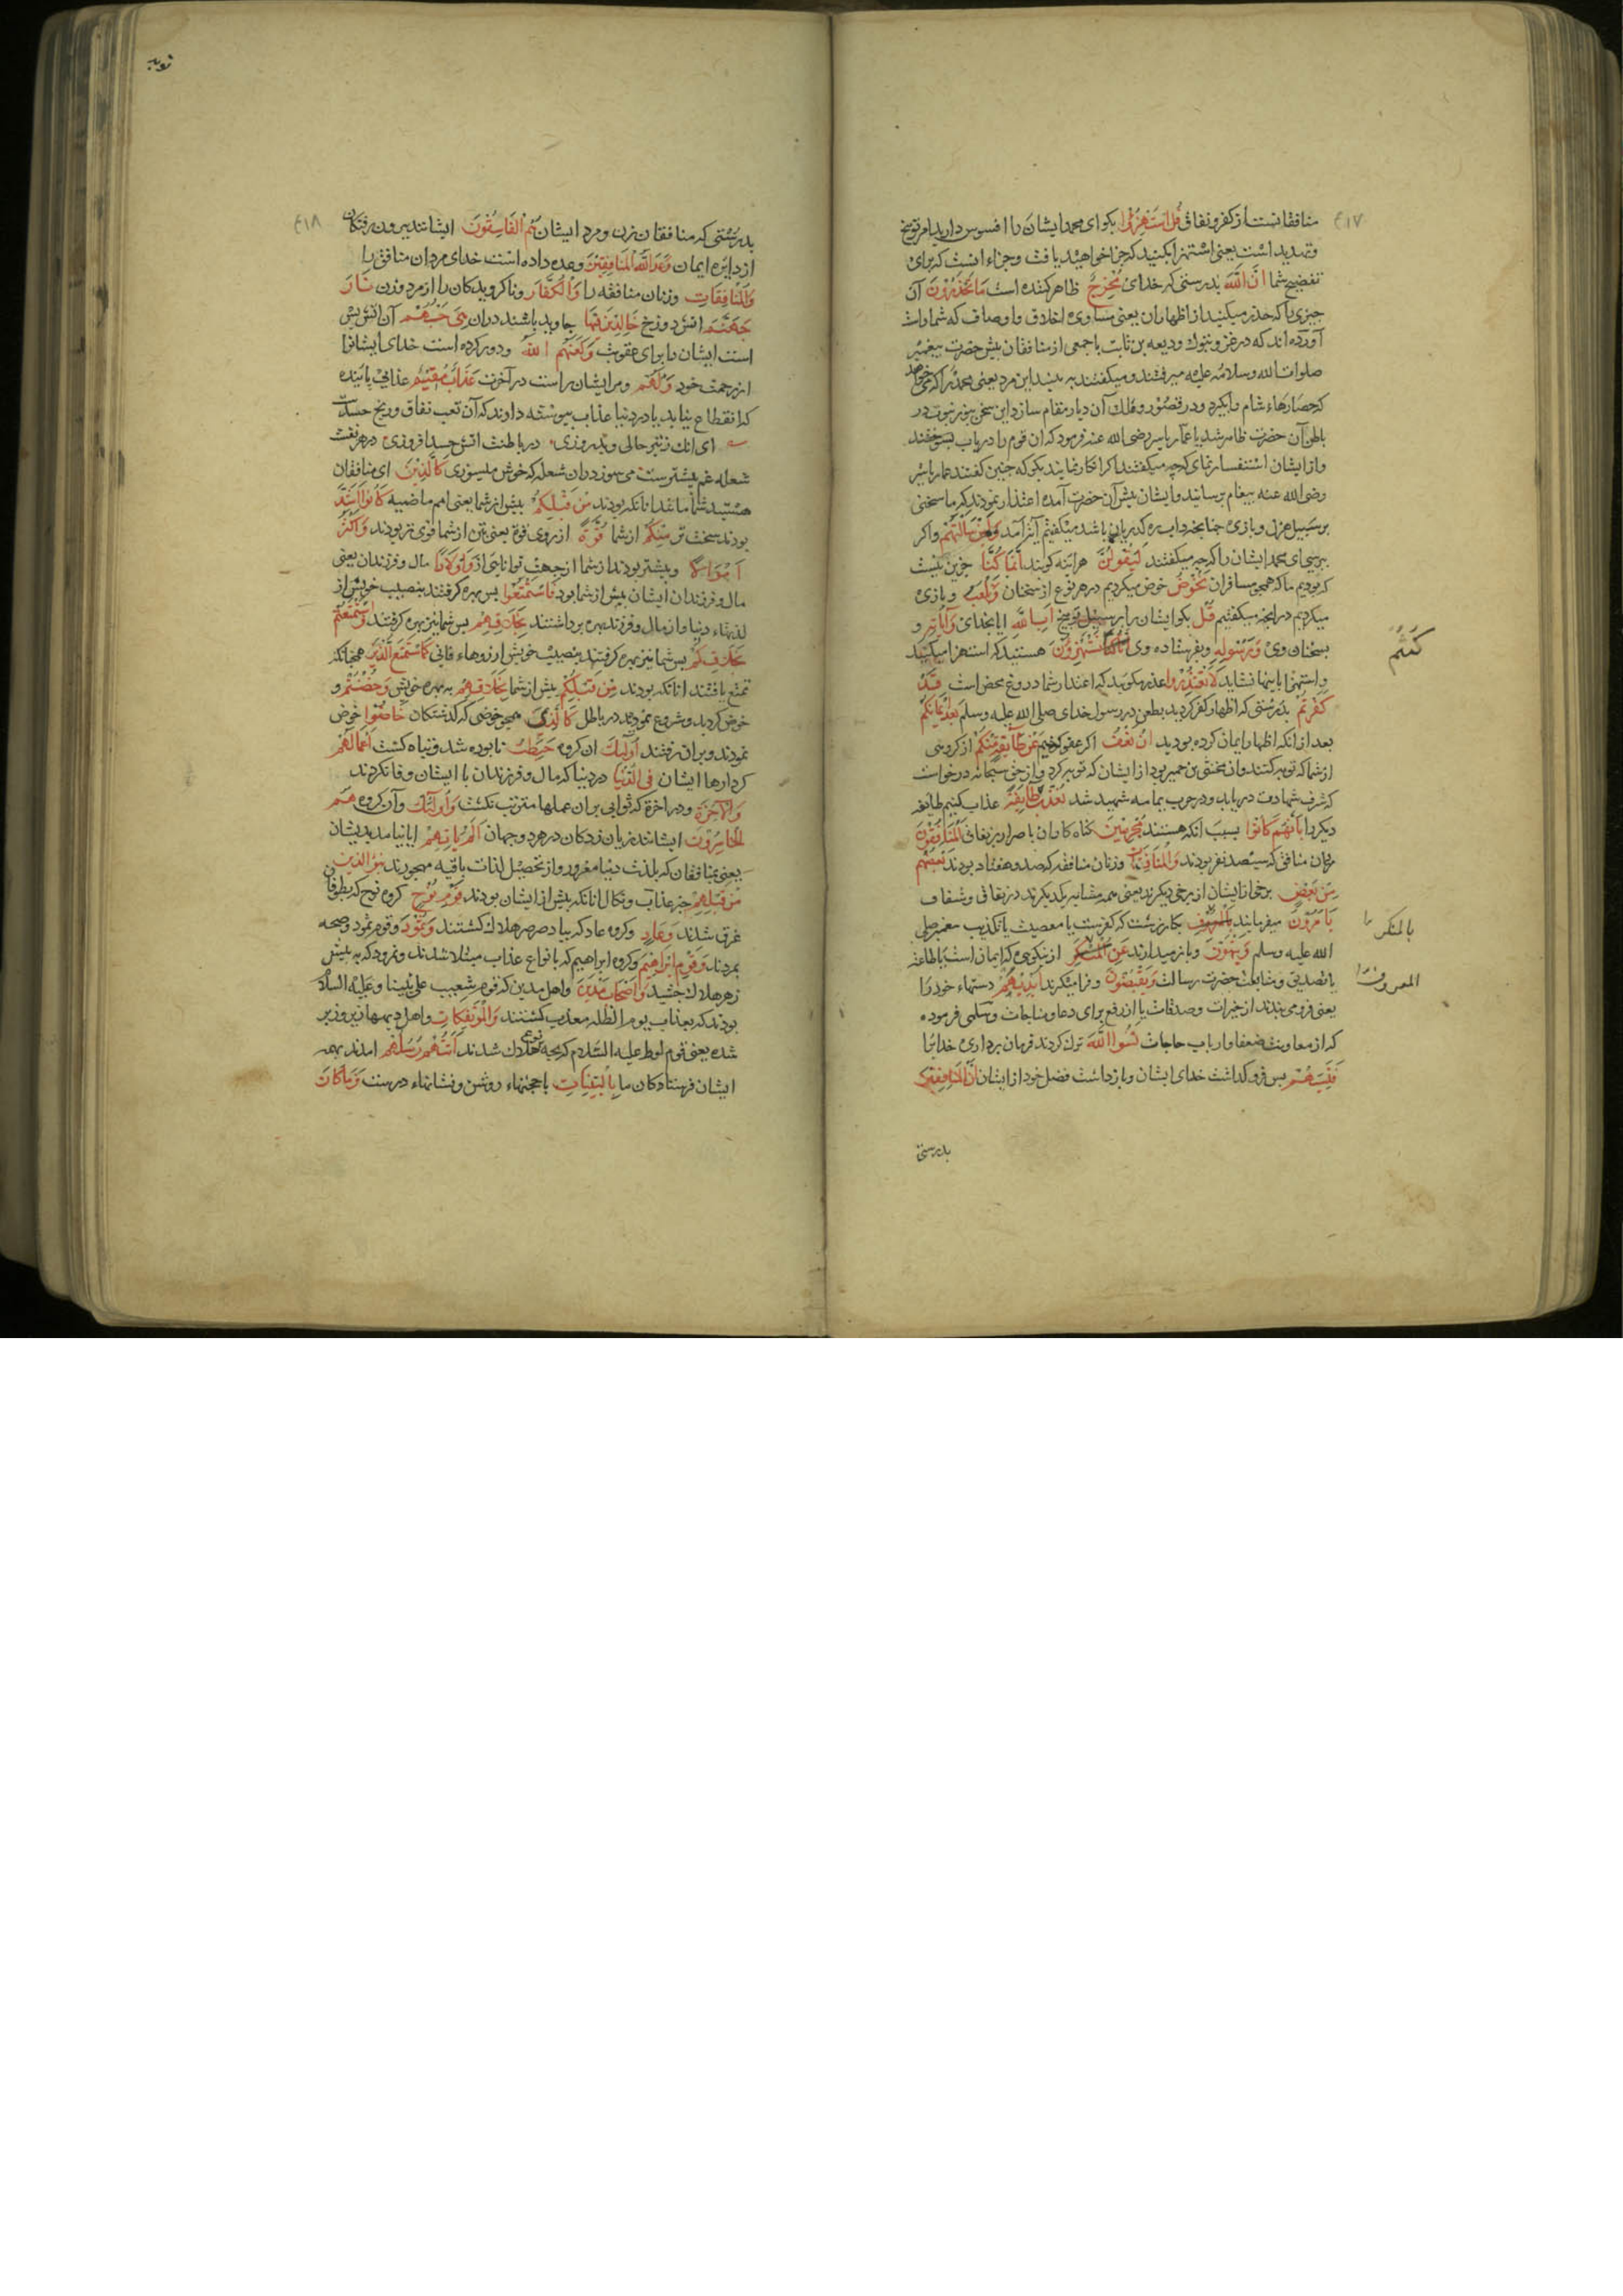 ۴۱۷
منافقانست از کفر و نفاق قُلِ اسْتَهْزِؤُا بکو ای محمد ایشان را افسوس دارید امر توبیخ
و تهدید است یعنی استهزا بکنید که جزا خواهید یافت و جزاء انست که برای
تفضیح شما اِنَّ اللّٰهَ بدرستی که خدای مُخْرِجٌ ظاهر کننده است مَا تَحْذَرُوْنَ آن
چیزی را که حذر میکنید از اظهار ان یعنی مساوی اخلاق و اوصاف که شماراست
آورده اند که در غزو تبوک ودیعه بن ثابت با جمعی از منافقان پیش حضرت پیغمبر
صلوات الله و سلامه علیه میرفتند و میکفتند به بینید این مرد یعنی محمد را که می خواهد
که حصارهاء شام را بکیرد و در قصور و فلک آن دیار مقام سازد این سخن بنور نبوت در
باطن آن حضرت ظاهر شد با عمار یاسر رضی الله عنه فرمود که ان قوم را دریاب بسوختند
و از ایشان استفسار نمای که چه میکفتند اکر انکار نمایند بکو که چنین کفتند عمار یاسر
رضی الله عنه پیغام برسانید و ایشان پیش آن حضرت آمده اعتذار نمودند که ما سخنی
بر سبیل هزل و بازی چنانچه داب ره کذریان باشد میکفتیم آیة آمد وَلَئِنْ سَاَلْتَهُمْ و اکر
بپرسی ای محمد ایشان را که چه میکفتند لَیَقُوْلُنَّ هر اینه کویند اِنَّمَا کُنَّا جز این نیست
که بودیم ما که همچو مسافران نَخُوْضُ خوض میکردیم در هر نوع از سخنان وَنَلْعَبُ و بازی
میکردیم در انچه میکفتیم قُلْ بکو ایشان را بر سبیل توبیخ اَبِاللّٰهِ ایا بخدای وَآیَاتِهِ و
بسخنان وی وَرَسُوْلِهِ و بفرستاده وی تَسْتَهْزِؤُنَ هستید که استهزا میکنید
کُنْتُمْ
و استهزا باینها نشاید لَا تَعْتَذِرُوا عذر مکویید که اعتذار شما دروغ محض است قَدْ
کَفَرْتُمْ بدرستی که اظهار کفر کردید بطعن در رسول خدای صلی الله علیه وسلم بَعْدَ اِیْمَانِکُمْ
بعد از انکه اظهار ایمان کرده بودید اِنْ نَعْفُ اکر عفو کنیم عَنْ طَائِفَةٍ مِنْکُمْ از کروهی
از شما که توبه کنند و ان مخشی بن حمیر بود از ایشان که توبه کرد و از حق سبحانه درخواست
که شرف شهادت دریابد و در حرب یمامه شهید شد نُعَذِّبْ طَائِفَةً عذاب کنیم طایفه
دیکر را بِاَنَّهُمْ کَانُوا بسبب انکه هستند مُجْرِمِیْنَ کناه کاران باصرار بر نفاق اَلْمُنَافِقُوْنَ
مردان منافق که سیصد نفر بودند وَالْمُنَافِقَاتُ و زنان منافقه که صد و هفتاد بودند بَعْضُهُمْ
مِنْ بَعْضٍ برخی از ایشان از برخی دیکرند یعنی همه مشابه یکدیکرند در نفاق و شقاق
یَاْمُرُوْنَ میفرمایند بکار زشت که کفرست یا معصیت یا تکذیب پیغمبر صلی
بالمنکر
الله علیه وسلم وَیَنْهَوْنَ و باز میدارند عَنِ از نیکویی که ایمان است یا طاعة
المعروف
یا تصدیق و متابعت حضرت رسالت وَیَقْبِضُوْنَ و فرا میکیرند اَیْدِیَهُمْ دستهاء خود را
یعنی فرو می بندند از خیرات و صدقات یا از رفع برای دعا و مناجات و سلمی فرموده
که از معاونت ضعفا و ارباب حاجات نَسُوا اللّٰهَ ترک کردند فرمان برداری خدایرا
فَنَسِیَهُمْ پس فرو کذاشت خدای ایشان و باز داشت فضل خود از ایشان اِنَّ الْمُنَافِقِیْنَ
بدرستی
توبه
۴۱۸
بدرستی که منافقان زن و مرد ایشان هُمُ الْفَاسِقُوْنَ ایشانند بیرون رفتکان
از دایره ایمان وَعَدَ اللّٰهُ الْمُنَافِقِیْنَ وعده داده است خدای مردان منافق را
وَالْمُنَافِقَاتِ و زنان منافقه را وَالْکُفَّارَ و ناکرویدکان را از مرد و زن نَارَ
جَهَنَّمَ اتش دوزخ خَالِدِیْنَ فِیْهَا جاوید باشند دران هِیَ حَسْبُهُمْ آن اتش بس
است ایشان را برای عقوبت وَلَعَنَهُمُ اللّٰهُ و دور کرده است خدای ایشانرا
از رحمت خود وَلَهُمْ و مر ایشان راست در آخرت عَذَابٌ مُقِیْمٌ عذابی پاینده
که انقطاع نیابد یا در دنیا عذاب پیوسته دارند که آن تعب نفاق و رنج حسدست
ای انک ز تیره حالی و تیره روزی در باطنت اتش حسد افروزی در هر نفست
شعله غم بیشترست می سوز دران شعله که خوش میسوزی کَالَّذِیْنَ ای منافقان
هستید شما مانند انانکه بودند مِنْ قَبْلِکُمْ پیش از شما یعنی امم ماضیه کَانُوا اَشَدَّ
بودند سخت تر مِنْکُمْ از شما قُوَّةً از روی قوة یعنی بتن از شما قوی تر بودند وَاَکْثَرَ
اَمْوَالًا و بیشتر بودند از شما از جهت توانایی از وَاَوْلَادًا مال و فرزندان یعنی
مال و فرزندان ایشان بیش از شما بود فَاسْتَمْتَعُوا پس بهره کرفتند بنصیب خویش از
لذتهاء دنیا و از مال و فرزند بهره برداشتند بِخَلَاقِهِمْ پس شما نیز بهره کرفتند فَاسْتَمْتَعْتُمْ
بِخَلَاقِکُمْ پس شما نیز بهره کرفتند بنصیب خویش از ارزوهاء فانی کَمَا اسْتَمْتَعَ الَّذِیْنَ همچنانکه
تمتع یافتند انانکه بودند مِنْ قَبْلِکُمْ پیش از شما بِخَلَاقِهِمْ به بهره خویش وَخُضْتُمْ و
خوض کردید و شروع نمودید در باطل کَالَّذِیْ همچو خوضی که کذشتکان خَاضُوا خوض
نمودند و بران رفتند اُولٰئِکَ ان کروه حَبِطَتْ نابوده شد و تباه کشت اَعْمَالُهُمْ
کردارها ایشان فِی الدُّنْیَا در دنیا که مال و فرزندان با ایشان وفا نکردند
وَالْآخِرَةِ و در اخرة که ثوابی بران عملها مترتب نکشت وَاُولٰئِکَ و آن کروه هُمُ
الْخَاسِرُوْنَ ایشانند زیان زدکان در هر دو جهان اَلَمْ یَاْتِهِمْ ایا نیامد بدیشان
یعنی بمنافقان که بلذت دنیا مغرور و از تحصیل لذات باقیه مهجورند نَبَأُ الَّذِیْنَ
مِنْ قَبْلِهِمْ خبر عذاب و نکال انانکه پیش از ایشان بودند قَوْمِ نُوْحٍ کروه نوح که بطوفان
غرق شدند وَعَادٍ و کروه عاد که بباد صرصر هلاک کشتند وَثَمُوْدَ و قوم ثمود و صیحه
بمردند وَقَوْمِ اِبْرَاهِیْمَ و کروه ابراهیم که بانواع عذاب مبتلا شدند و نمرود که به نیش
زهر هلاک چشید وَاَصْحَابِ مَدْیَنَ و اهل مدین که قوم شعیب علی نبینا و علیه السلام
بودند که بعذاب یوم الظله معذب کشتند وَالْمُؤْتَفِکَاتِ و اهل دیهها زیر و زبر
شده یعنی قوم لوط علیه السلام که همه هلاک شدند اَتَتْهُمْ رُسُلُهُمْ امدند بهمه
ایشان فرستادکان ما بِالْبَیِّنَاتِ با حجتهاء روشن و نشانهاء درست وَمَا کَانَ